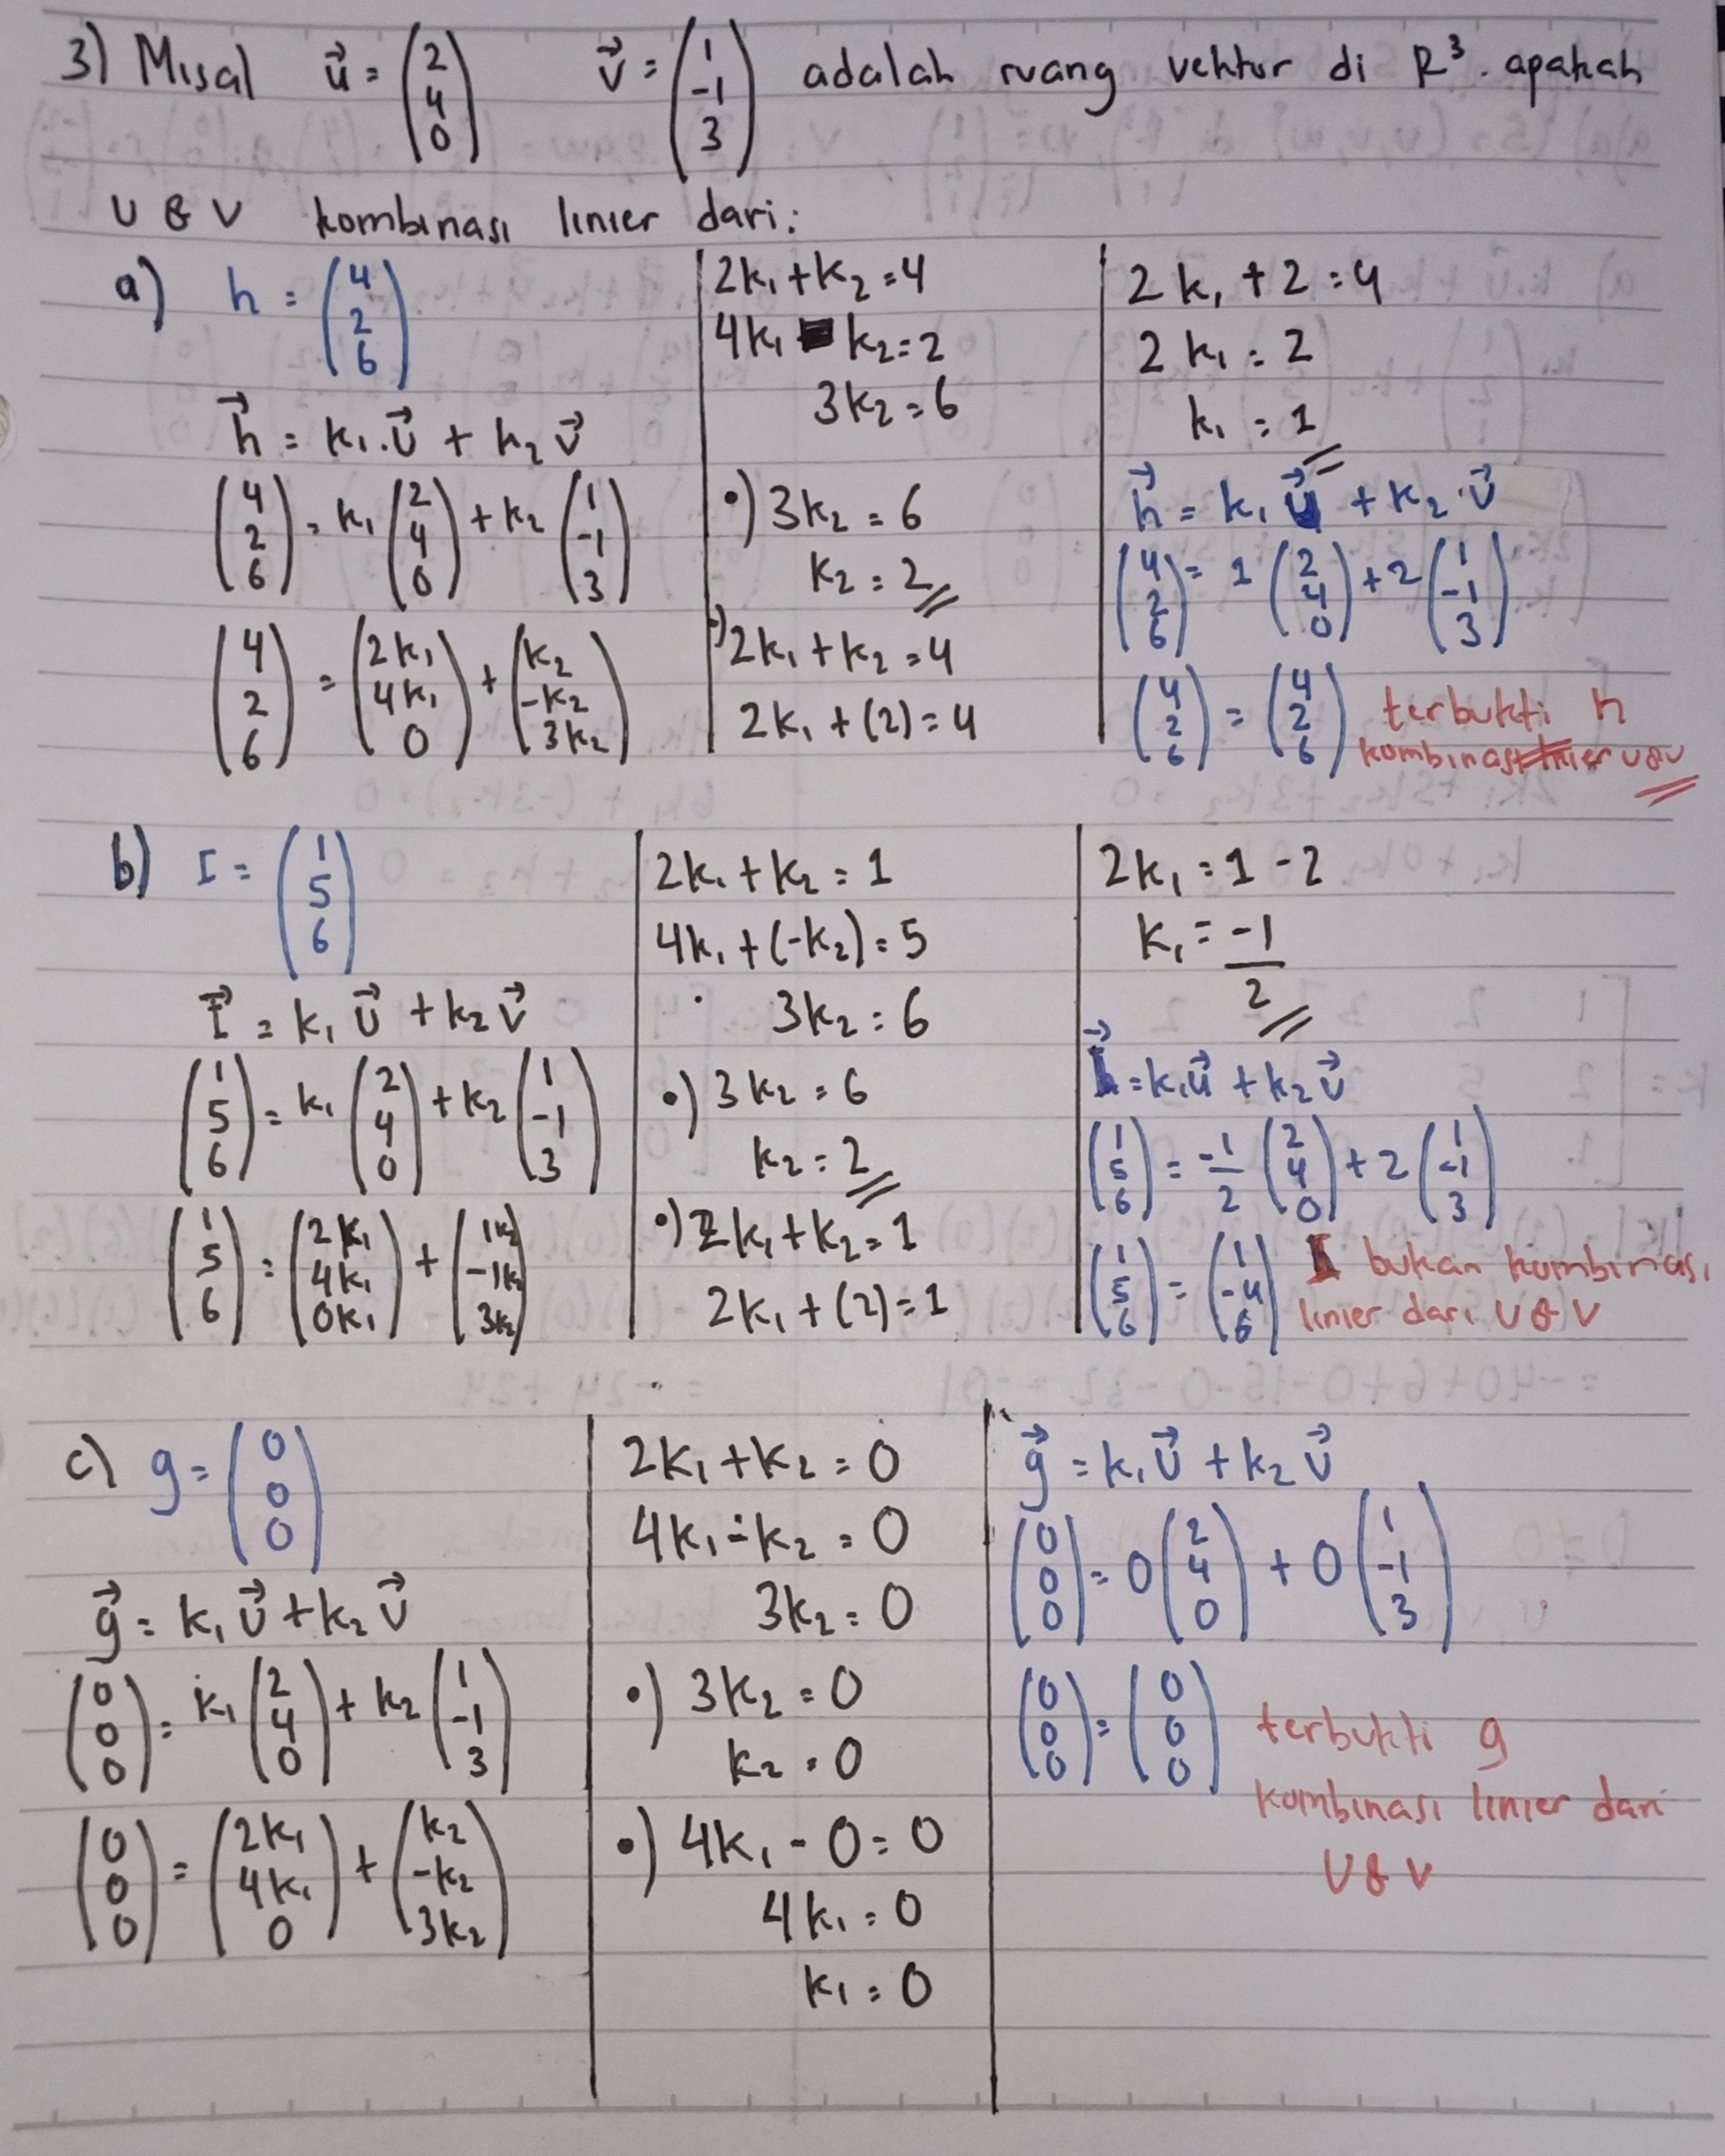 3) Misal u⃗ = (2 4 0) v⃗ = (1 -1 3) adalah ruang vektor di R³. apakah
U & V kombinasi linier dari:
a) h = (4 2 6)
h⃗ = k₁.u⃗ + k₂ v⃗
(4 2 6) = k₁ (2 4 0) + k₂ (1 -1 3)
(4 2 6) = (2k₁ 4k₁ 0) + (k₂ -k₂ 3k₂)
2k₁ + k₂ = 4
4k₁ - k₂ = 2
3k₂ = 6
•) 3k₂ = 6
k₂ = 2
•) 2k₁ + k₂ = 4
2k₁ + (2) = 4
2k₁ + 2 = 4
2k₁ = 2
k₁ = 1
h⃗ = k₁ u⃗ + k₂ . v⃗
(4 2 6) = 1 (2 4 0) + 2 (1 -1 3)
(4 2 6) = (4 2 6) terbukti h
kombinasi linier u & v
b) I = (1 5 6)
I⃗ = k₁ u⃗ + k₂ v⃗
(1 5 6) = k₁ (2 4 0) + k₂ (1 -1 3)
(1 5 6) = (2k₁ 4k₁ 0k₁) + (1k₂ -1k₂ 3k₂)
2k₁ + k₂ = 1
4k₁ + (-k₂) = 5
3k₂ = 6
•) 3k₂ = 6
k₂ = 2
•) 2k₁ + k₂ = 1
2k₁ + (2) = 1
2k₁ = 1 - 2
k₁ = -1/2
= k₁ u⃗ + k₂ v⃗
(1 5 6) = -1/2 (2 4 0) + 2 (1 -1 3)
(1 5 6) = (1 -4 6) I bukan kombinasi
linier dari U & V
c) g = (0 0 0)
g⃗ = k₁ u⃗ + k₂ v⃗
(0 0 0) = k₁ (2 4 0) + k₂ (1 -1 3)
(0 0 0) = (2k₁ 4k₁ 0) + (k₂ -k₂ 3k₂)
2k₁ + k₂ = 0
4k₁ - k₂ = 0
3k₂ = 0
•) 3k₂ = 0
k₂ = 0
•) 4k₁ - 0 = 0
4k₁ = 0
k₁ = 0
g⃗ = k₁ u⃗ + k₂ v⃗
(0 0 0) = 0 (2 4 0) + 0 (1 -1 3)
(0 0 0) = (0 0 0) terbukti g
kombinasi linier dari
U & V